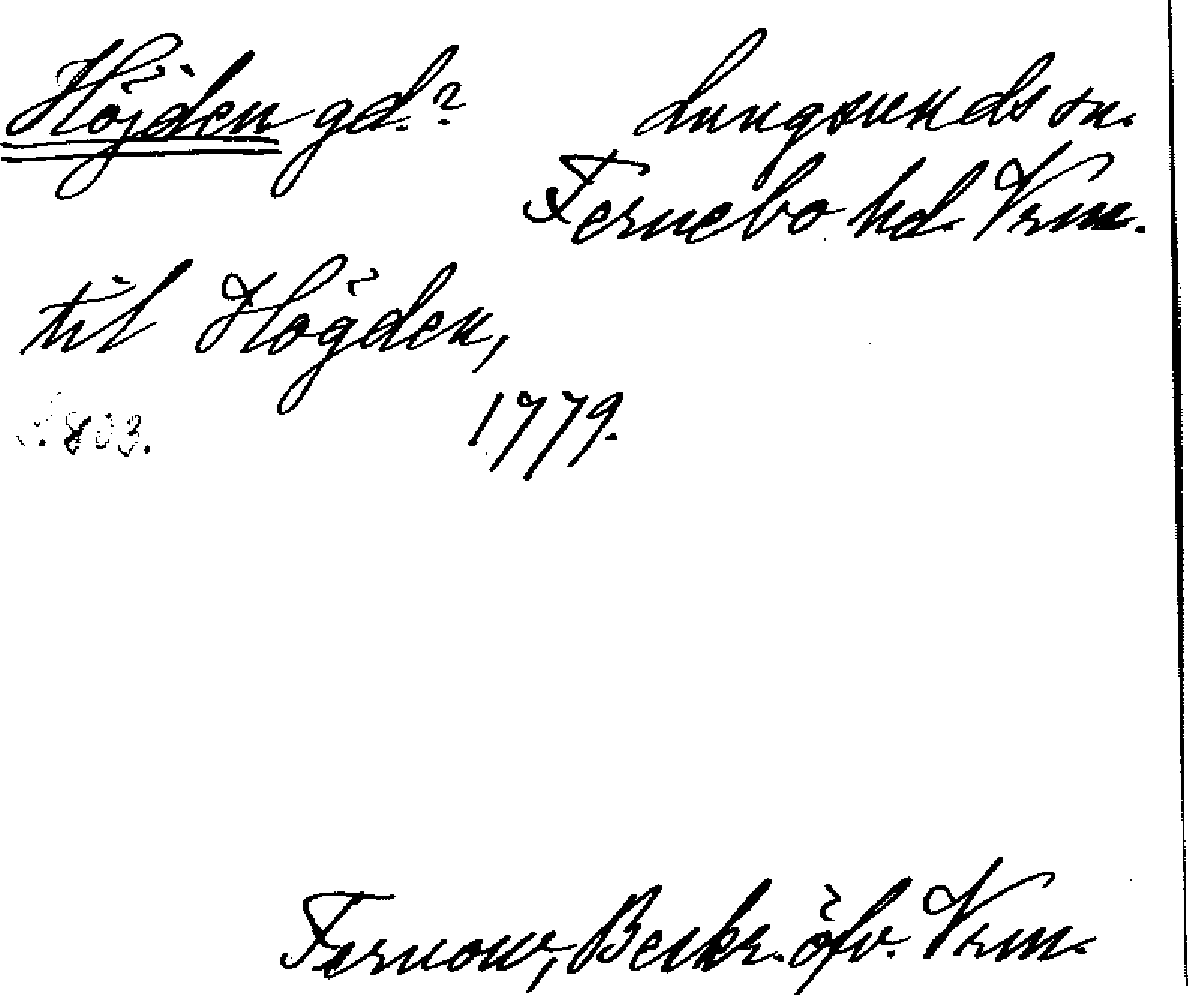 Höjden gd.? Lungsunds sn.
Fernebo hd. Vrm.
til Högden,
S. 803. 1779.
Fernow, Beskr. öfv. Vrm.